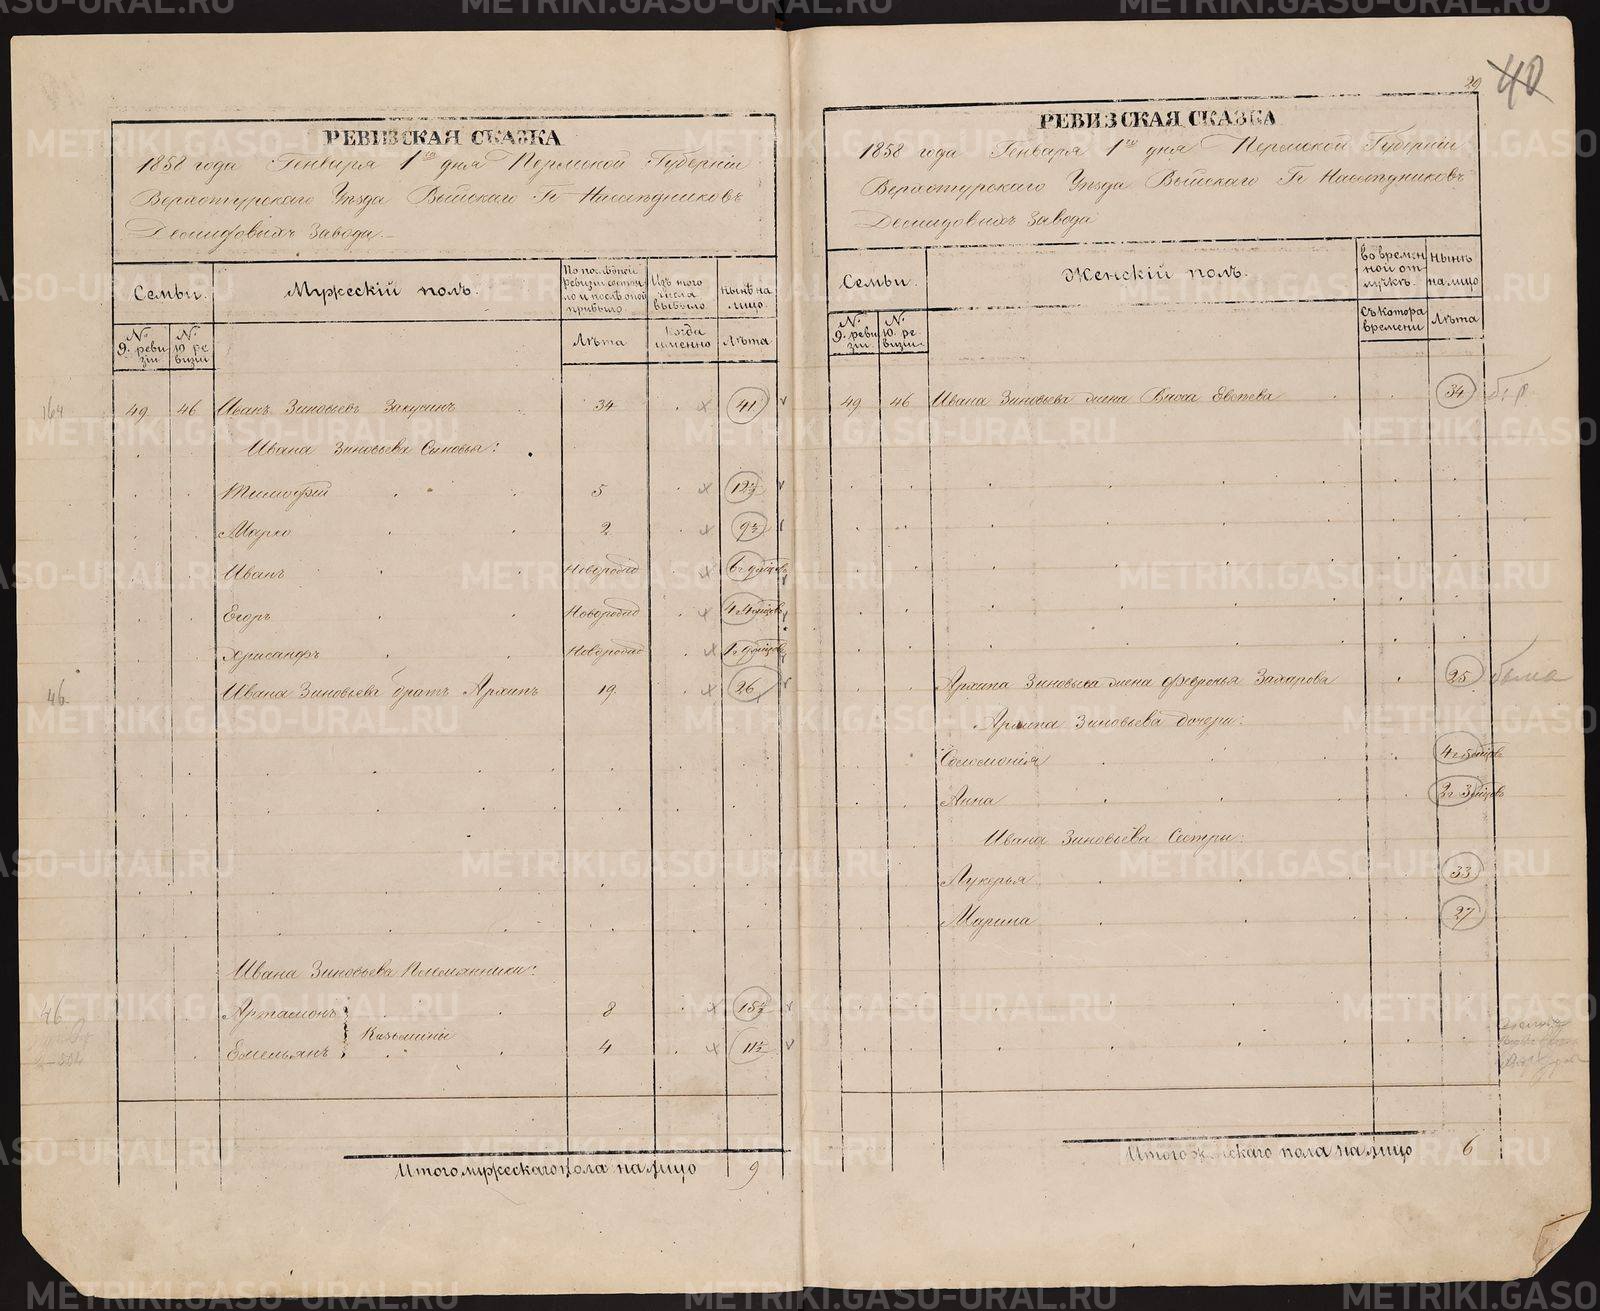 29
40
РЕВИЗСКАЯ СКАЗКА
1858 года Генваря 1го дня Пермской Губерніи
Верхотурскаго Уѣзда Выйскаго Гг Наслѣдниковъ
Демидовыхъ Завода
Семьи.
Мужескій полъ.
По послѣдней ревизіи состояло и послѣ оной прибыло
Изъ того числа выбыло
Нынѣ на лицо
№ 9. ревизіи
№ 10 ревизіи
Лѣта
Когда именно
Лѣта
164
49 46 Иванъ Зиновьевъ 34 41
Ивана Зиновьева Сыновья:
Тимофей 5 12½
Марко 2 9½
Иванъ Новорожд
Егоръ Новорожд
Хрисанфъ Новорожд
46 Ивана Зиновьева братъ Архипъ 19 26
Ивана Зиновьева Племянники:
46 Артамонъ 8 15½
Козьмины
Емельянъ 4 11½
Итого мужескаго пола на лицо 9
РЕВИЗСКАЯ СКАЗКА
1858 года Генваря 1го дня Пермской Губерніи
Верхотурскаго Уѣзда Выйскаго Гг Наслѣдниковъ
Демидовыхъ Завода
Семьи.
Женскій полъ.
Во временной отлучкѣ.
Нынѣ на лицо
№ 9. ревизіи
№ 10. ревизіи
Съ котора времени
Лѣта
49 46 Ивана Зиновьева жена Васса 34
Архипа Зиновьева жена Февронья Захарова 25
Архипа Зиновьева дочери:
Соломонія
Анна
Ивана Зиновьева Сестры:
Лукерья 33
Марина 27
Итого женскаго пола на лицо 6
METRIKI.GASO-URAL.RU